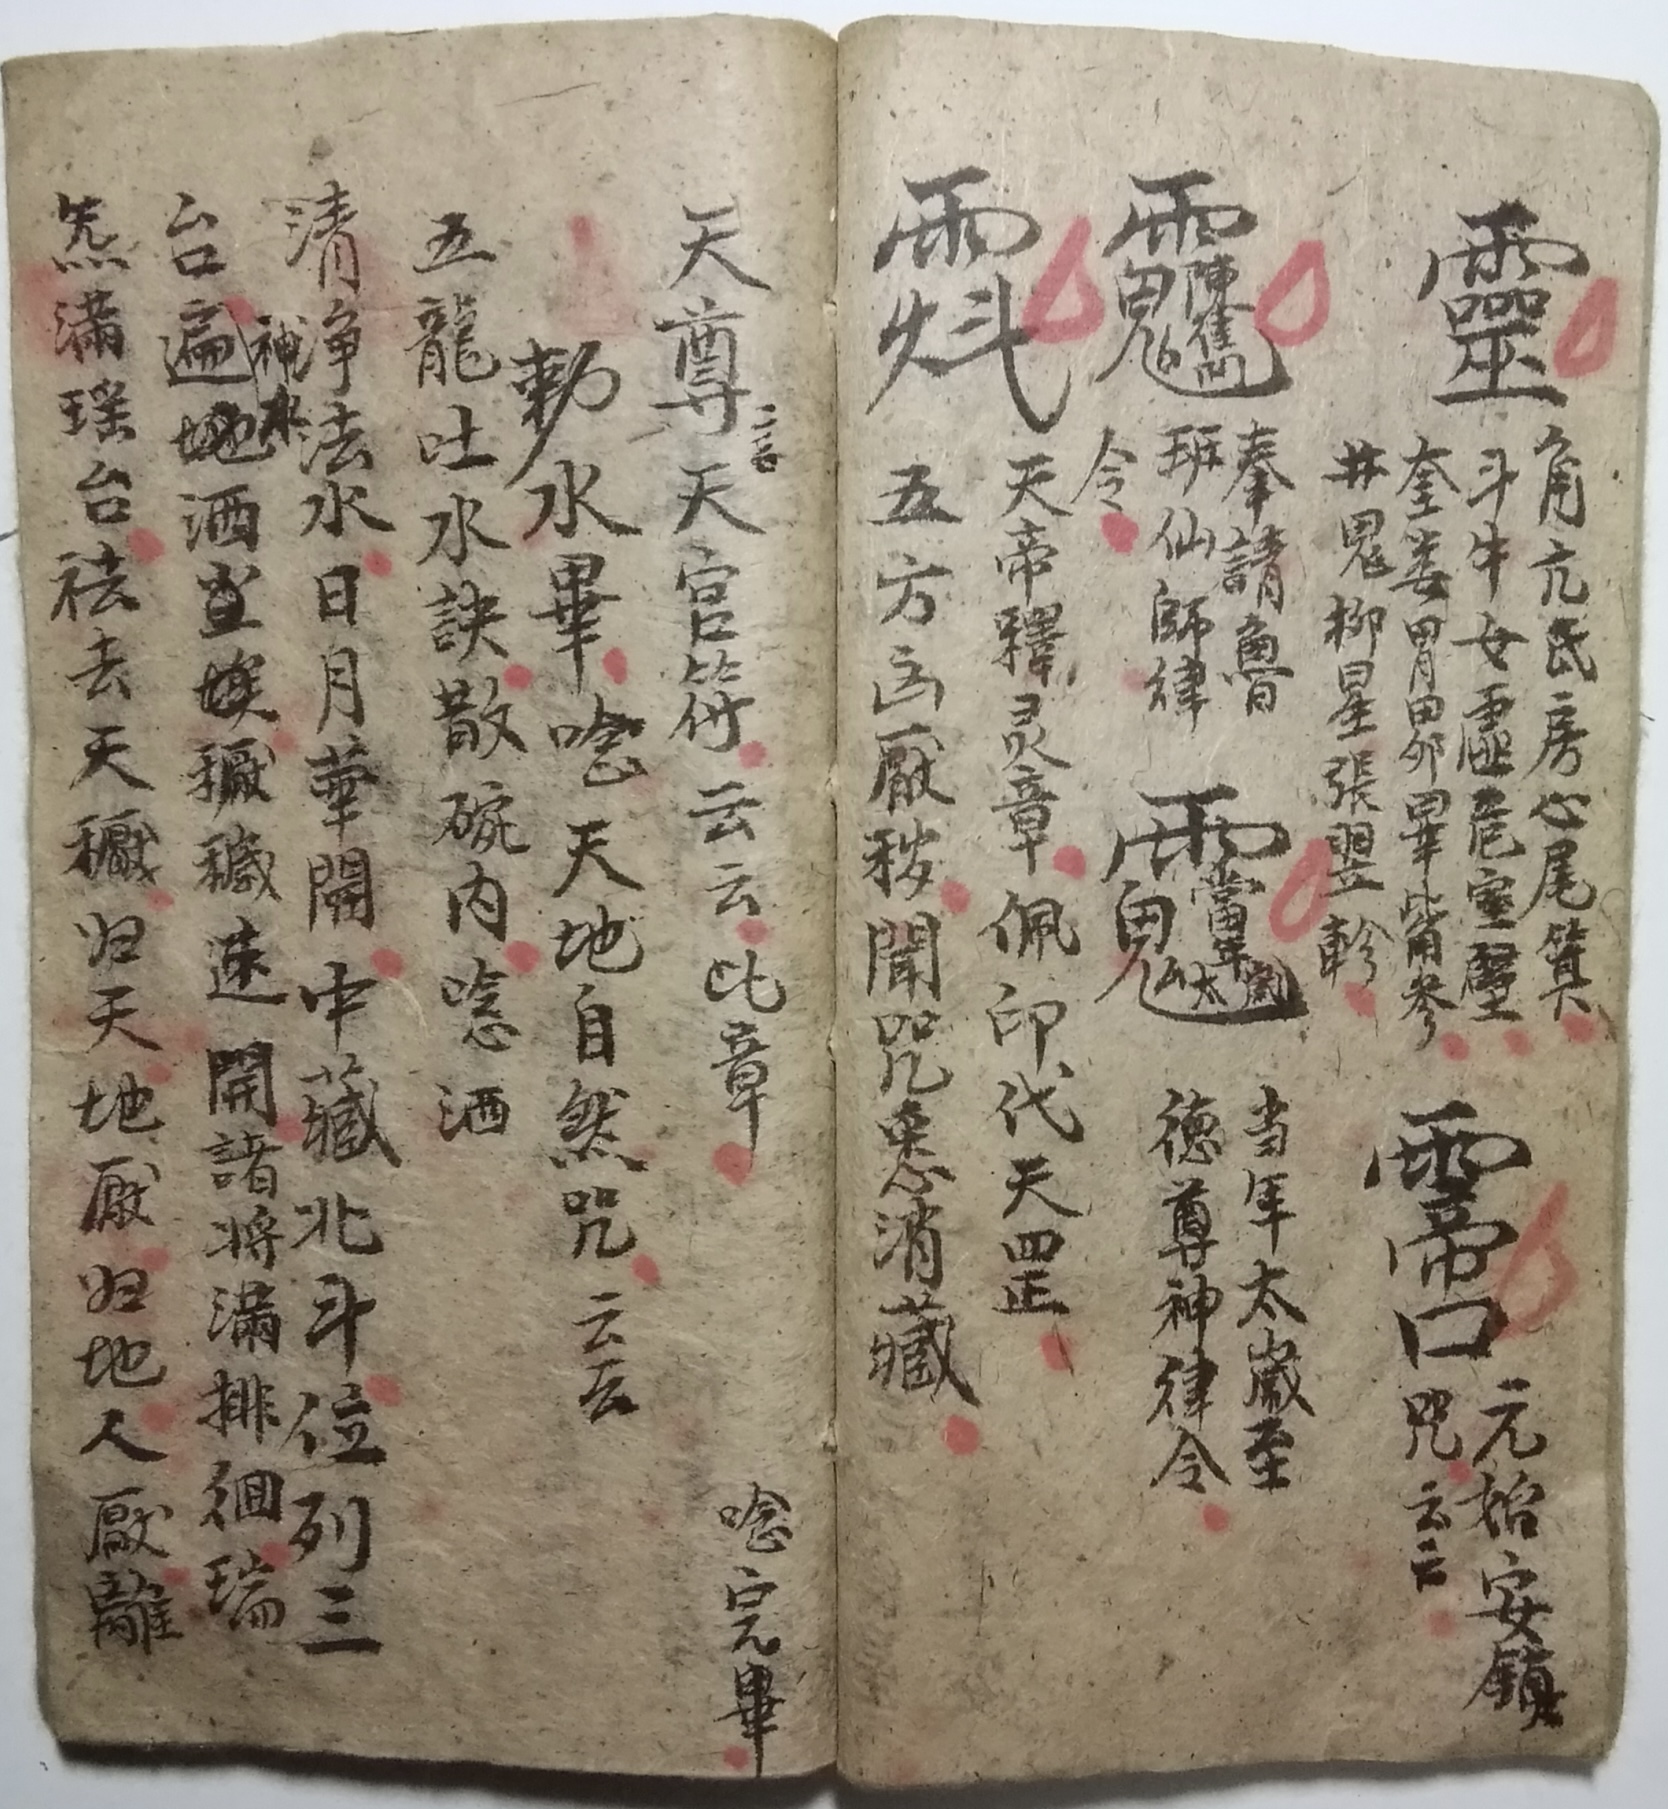 靈
角亢氐房心尾箕
斗牛女虛危室壁
奎婁胃昴畢觜參
井鬼柳星張翌軫
元始安鎮
咒云云
奉請魯
班仙師律
令
当年太歲至
德尊神律令
天帝釋灵章佩印代天罡
五方凶厭秽聞咒悉消藏
天尊 天官符云云此章
唸完畢
勅水畢唸天地自然咒云云
五龍吐水訣散碗内唸洒
清净法水日月華開中藏北斗位列三
神水
台遍地洒 埃穢速開諸將滿排徊瑞
炁滿瑶台祛去天穢归天地厭归地人厭離